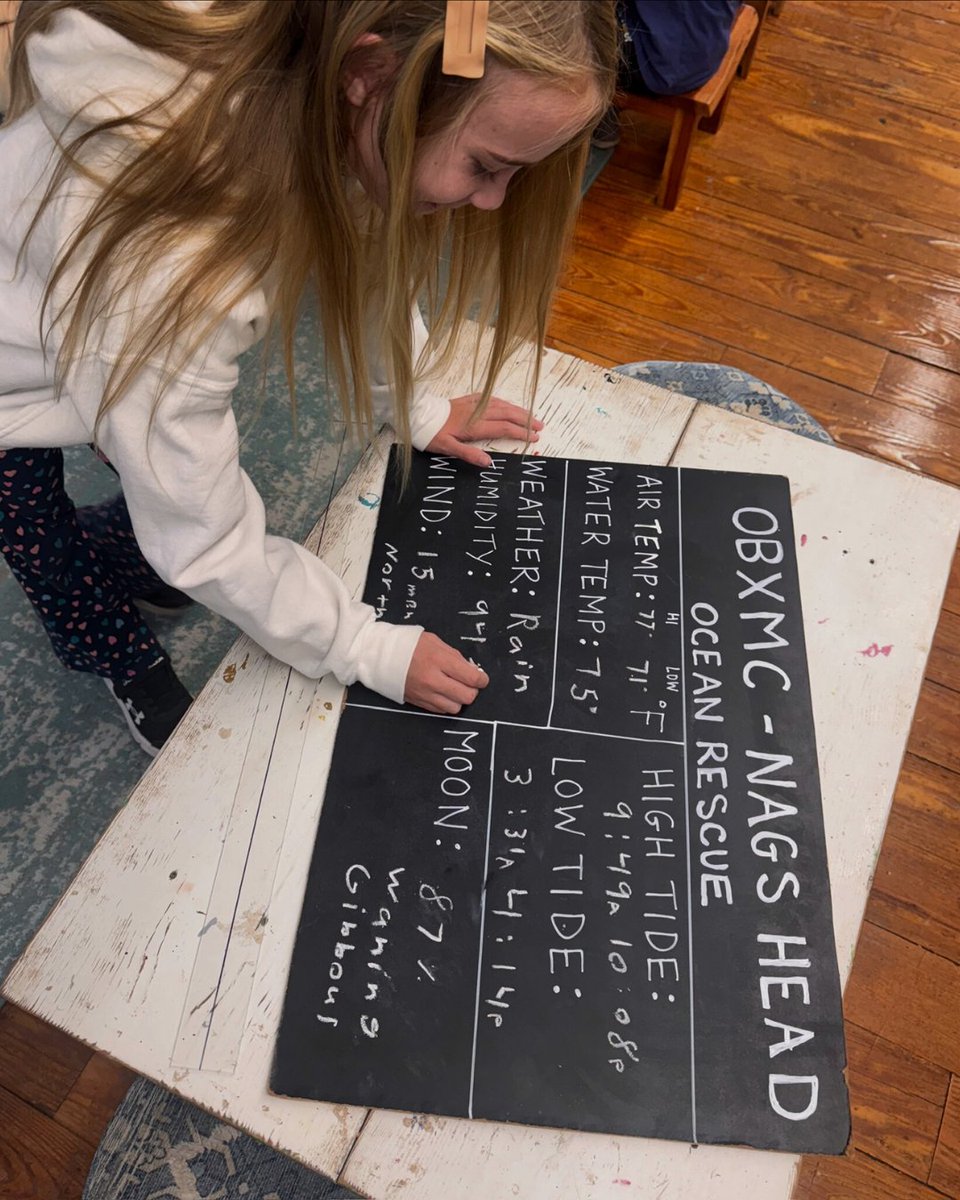 OBXMC - NAGS HEAD
OCEAN RESCUE
HI LOW
AIR TEMP: 77° 71° °F
WATER TEMP: 75°
WEATHER: Rain
HUMIDITY: 94
WIND: 15 mph
North
HIGH TIDE:
9:49A 10:08P
LOW TIDE:
3:31A 4:14P
MOON: 87%
Waning
Gibbous